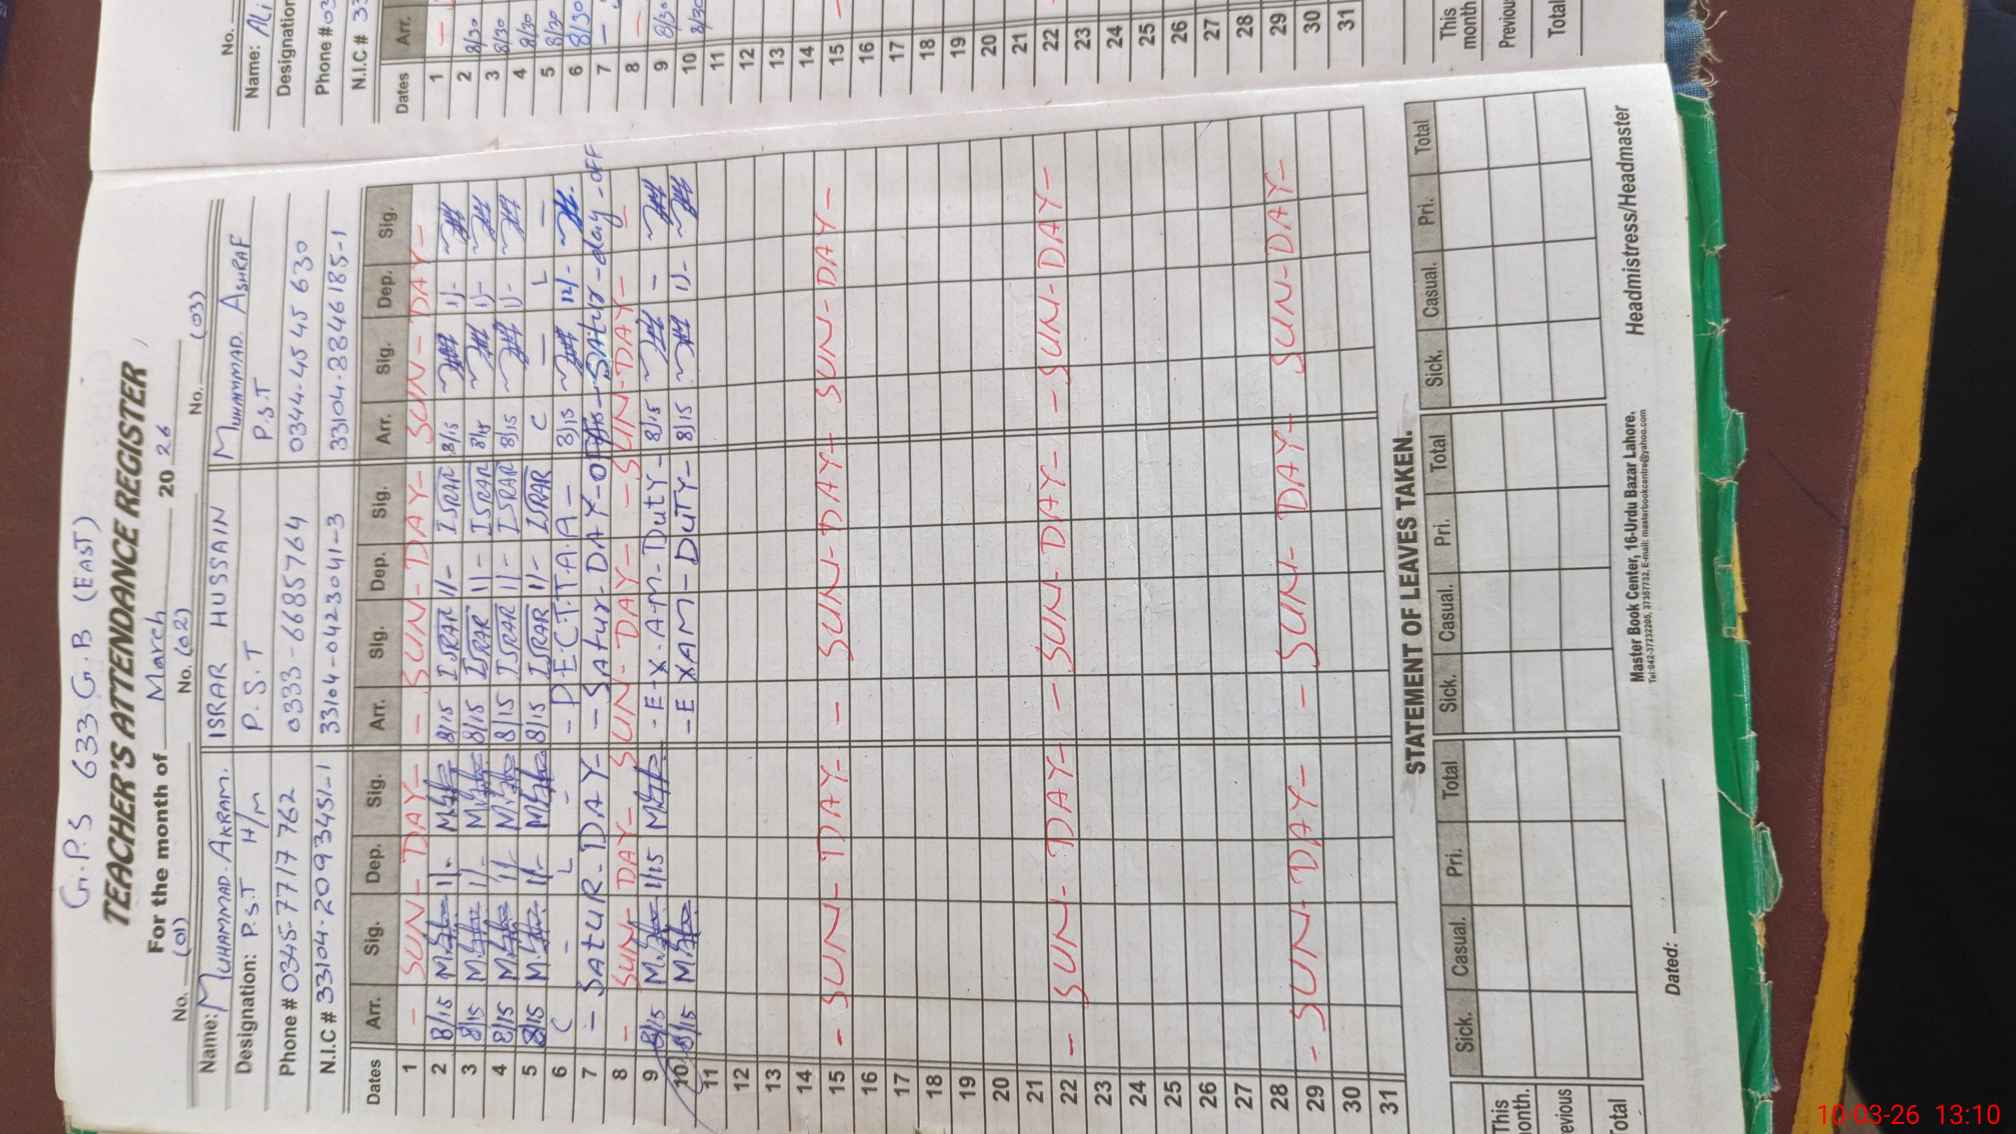 G.P.S 633 G.B (EAST)
TEACHER'S ATTENDANCE REGISTER
For the month of March 2026
No. (01) No. (02) No. (03)
Name: MUHAMMAD.AKRAM. ISRAR HUSSAIN MUHAMMAD ASHRAF
Designation: P.S.T H/m P.S.T P.S.T
Phone # 0345-7717762 0333-6685764 0344-4545630
N.I.C # 33104-2093451-1 33104-0423041-3
Dates Arr. Sig. Dep. Sig. Arr. Sig. Dep. Sig. Arr. Sig. Dep. Sig.
1 - SUN - DAY - - SUN - DAY - SUN - DAY -
2 8/15 1/- 8/15 ISRAR 1/- ISRAR 8/15 1/-
3 8/15 1/- 8/15 ISRAR 1/- ISRAR 8/15 1/-
4 8/15 1/- 8/15 ISRAR 1/- ISRAR 8/15 1/-
5 8/15 1/- 8/15 ISRAR 1/- ISRAR C - L -
6 C - L - - P.E.C.T.T.A.A - 8/15 12/-
7 - SATUR - DAY - - Satur - DAY - OFF - Satur - day - OFF
8 - SUN - DAY - SUN - DAY - - SUN - DAY -
9 8/15 1/15 - E-X-A-M - DUTY - 8/15 -
10 8/15 - EXAM - DUTY - 8/15 1/-
11
12
13
14
15 - SUN - DAY - - SUN - DAY - SUN - DAY -
16
17
18
19
20
21
22 - SUN - DAY - - SUN - DAY - - SUN - DAY -
23
24
25
26
27
28
29 - SUN - DAY - - SUN - DAY - SUN - DAY -
30
31
STATEMENT OF LEAVES TAKEN.
Sick. Casual. Pri. Total Sick. Casual. Pri. Total Sick. Casual. Pri. Total
This month.
evious
Total
Master Book Center, 16-Urdu Bazar Lahore.
Dated: Headmistress/Headmaster
No.
Name: Ali
Designation
Phone # 03
N.I.C # 33
Dates Arr.
1 -
2 8/30
3 8/30
4 8/30
5 8/30
6 8/30
7 -
8 -
9 8/30
10 8/30
11
12
13
14
15 -
16
17
18
19
20
21
22
23
24
25
26
27
28
29
30
31
This month
Previous
Total
10-03-26 13:10